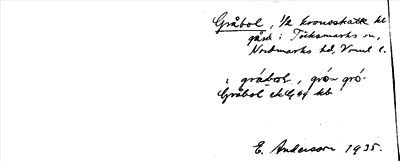 Gråbol, 1/2 kronoskatte he
gård i Töcksmarks sn,
Nordmarks hd, Vrml l.
i gråbol, grön grö-
Gråbol
E. Andersson 1935.